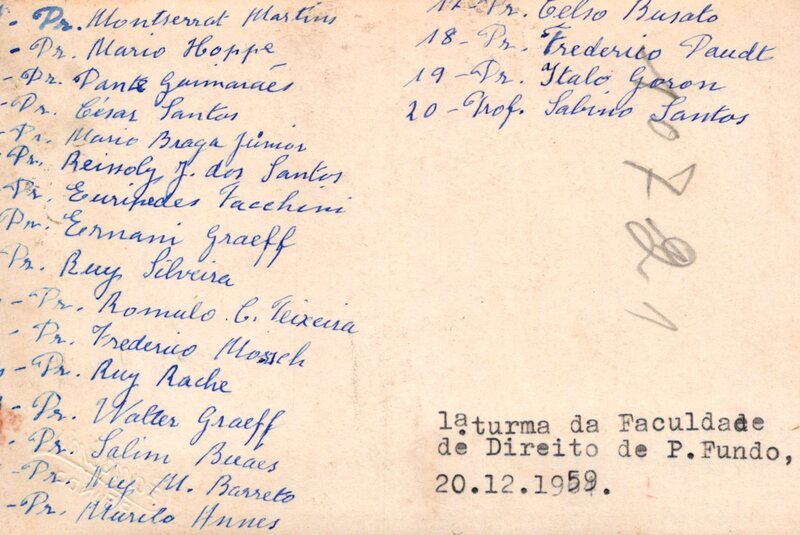 - Dr. Montserrat Martins
- Dr. Mario Hoppe
- Dr. Dante Guimarães
- Dr. César Santos
- Dr. Mario Braga Júnior
Dr. Reissoly J. dos Santos
Dr. Euripedes Facchini
Dr. Ernani Graeff
Dr. Ruy Silveira
- Dr. Romulo C. Teixeira
- Dr. Frederico Morsch
- Dr. Ruy Rache
- Dr. Walter Graeff
- Dr. Salim Buaes
- Dr. Ney M. Barreto
- Dr. Murilo Annes
17 - Dr. Celso Busato
18 - Dr. Frederico Daudt
19 - Dr. Italo Goron
20 - Prof. Sabino Santos
1a. turma da Faculdade
de Direito de P.Fundo,
20.12.1959.